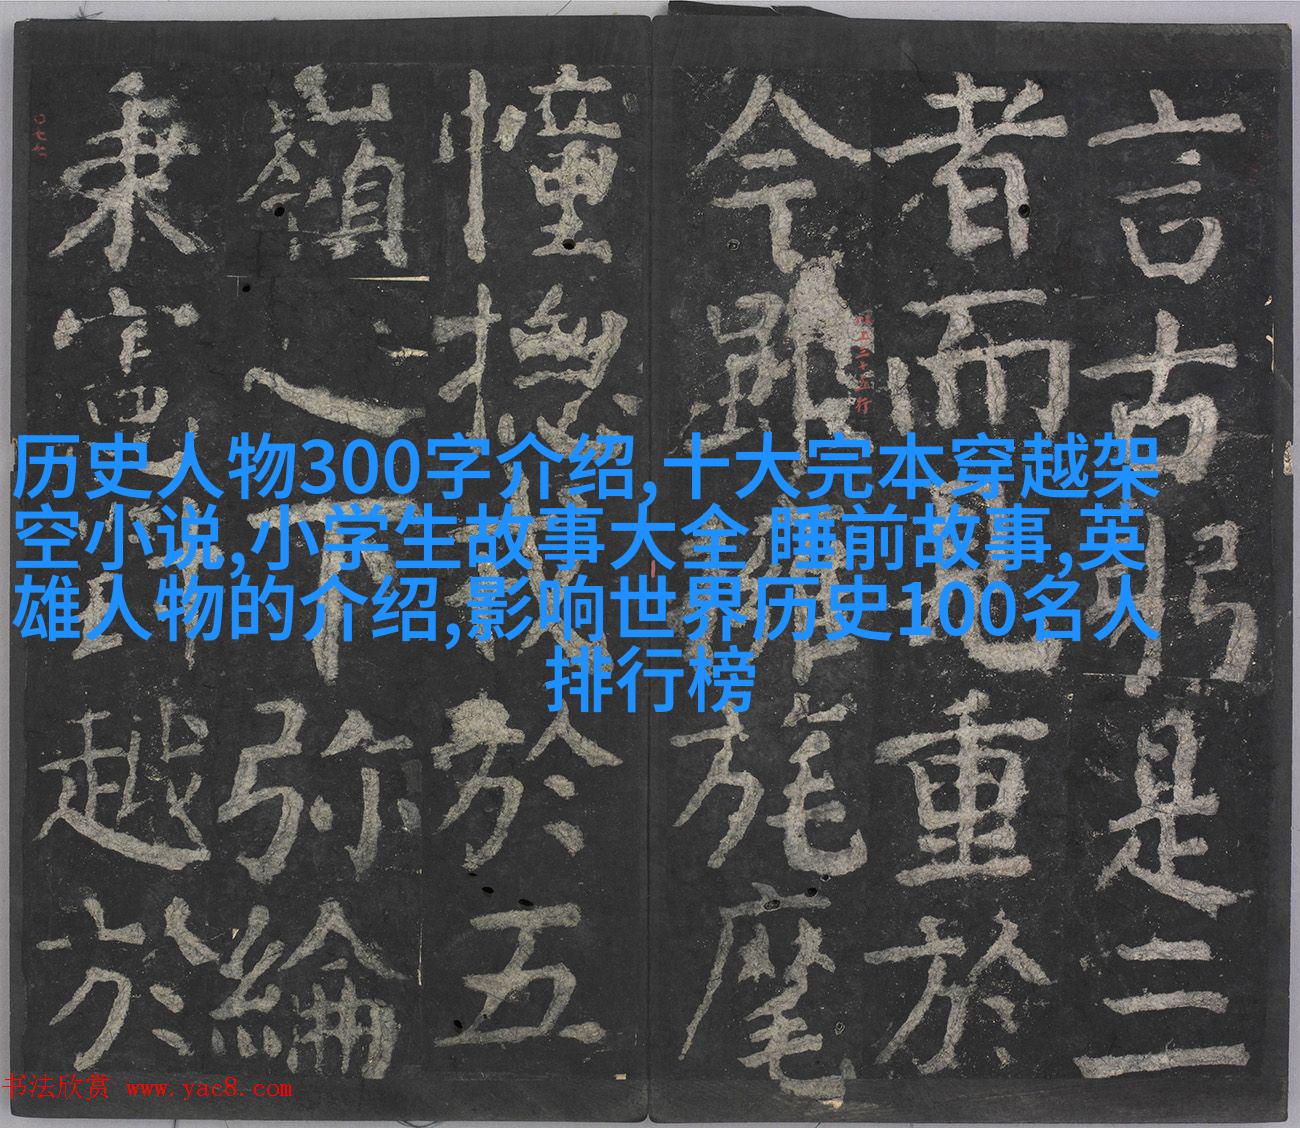 历史人物300字介绍,十大完本穿越架
空小说,小学生故事大全 睡前故事,英
雄人物的介绍,影响世界历史100名人
排行榜
言古躬是三
者而重於
今旄麾
憧揔於五
嶺之下弥綸
秉越於
书法欣赏 www.yac8.com